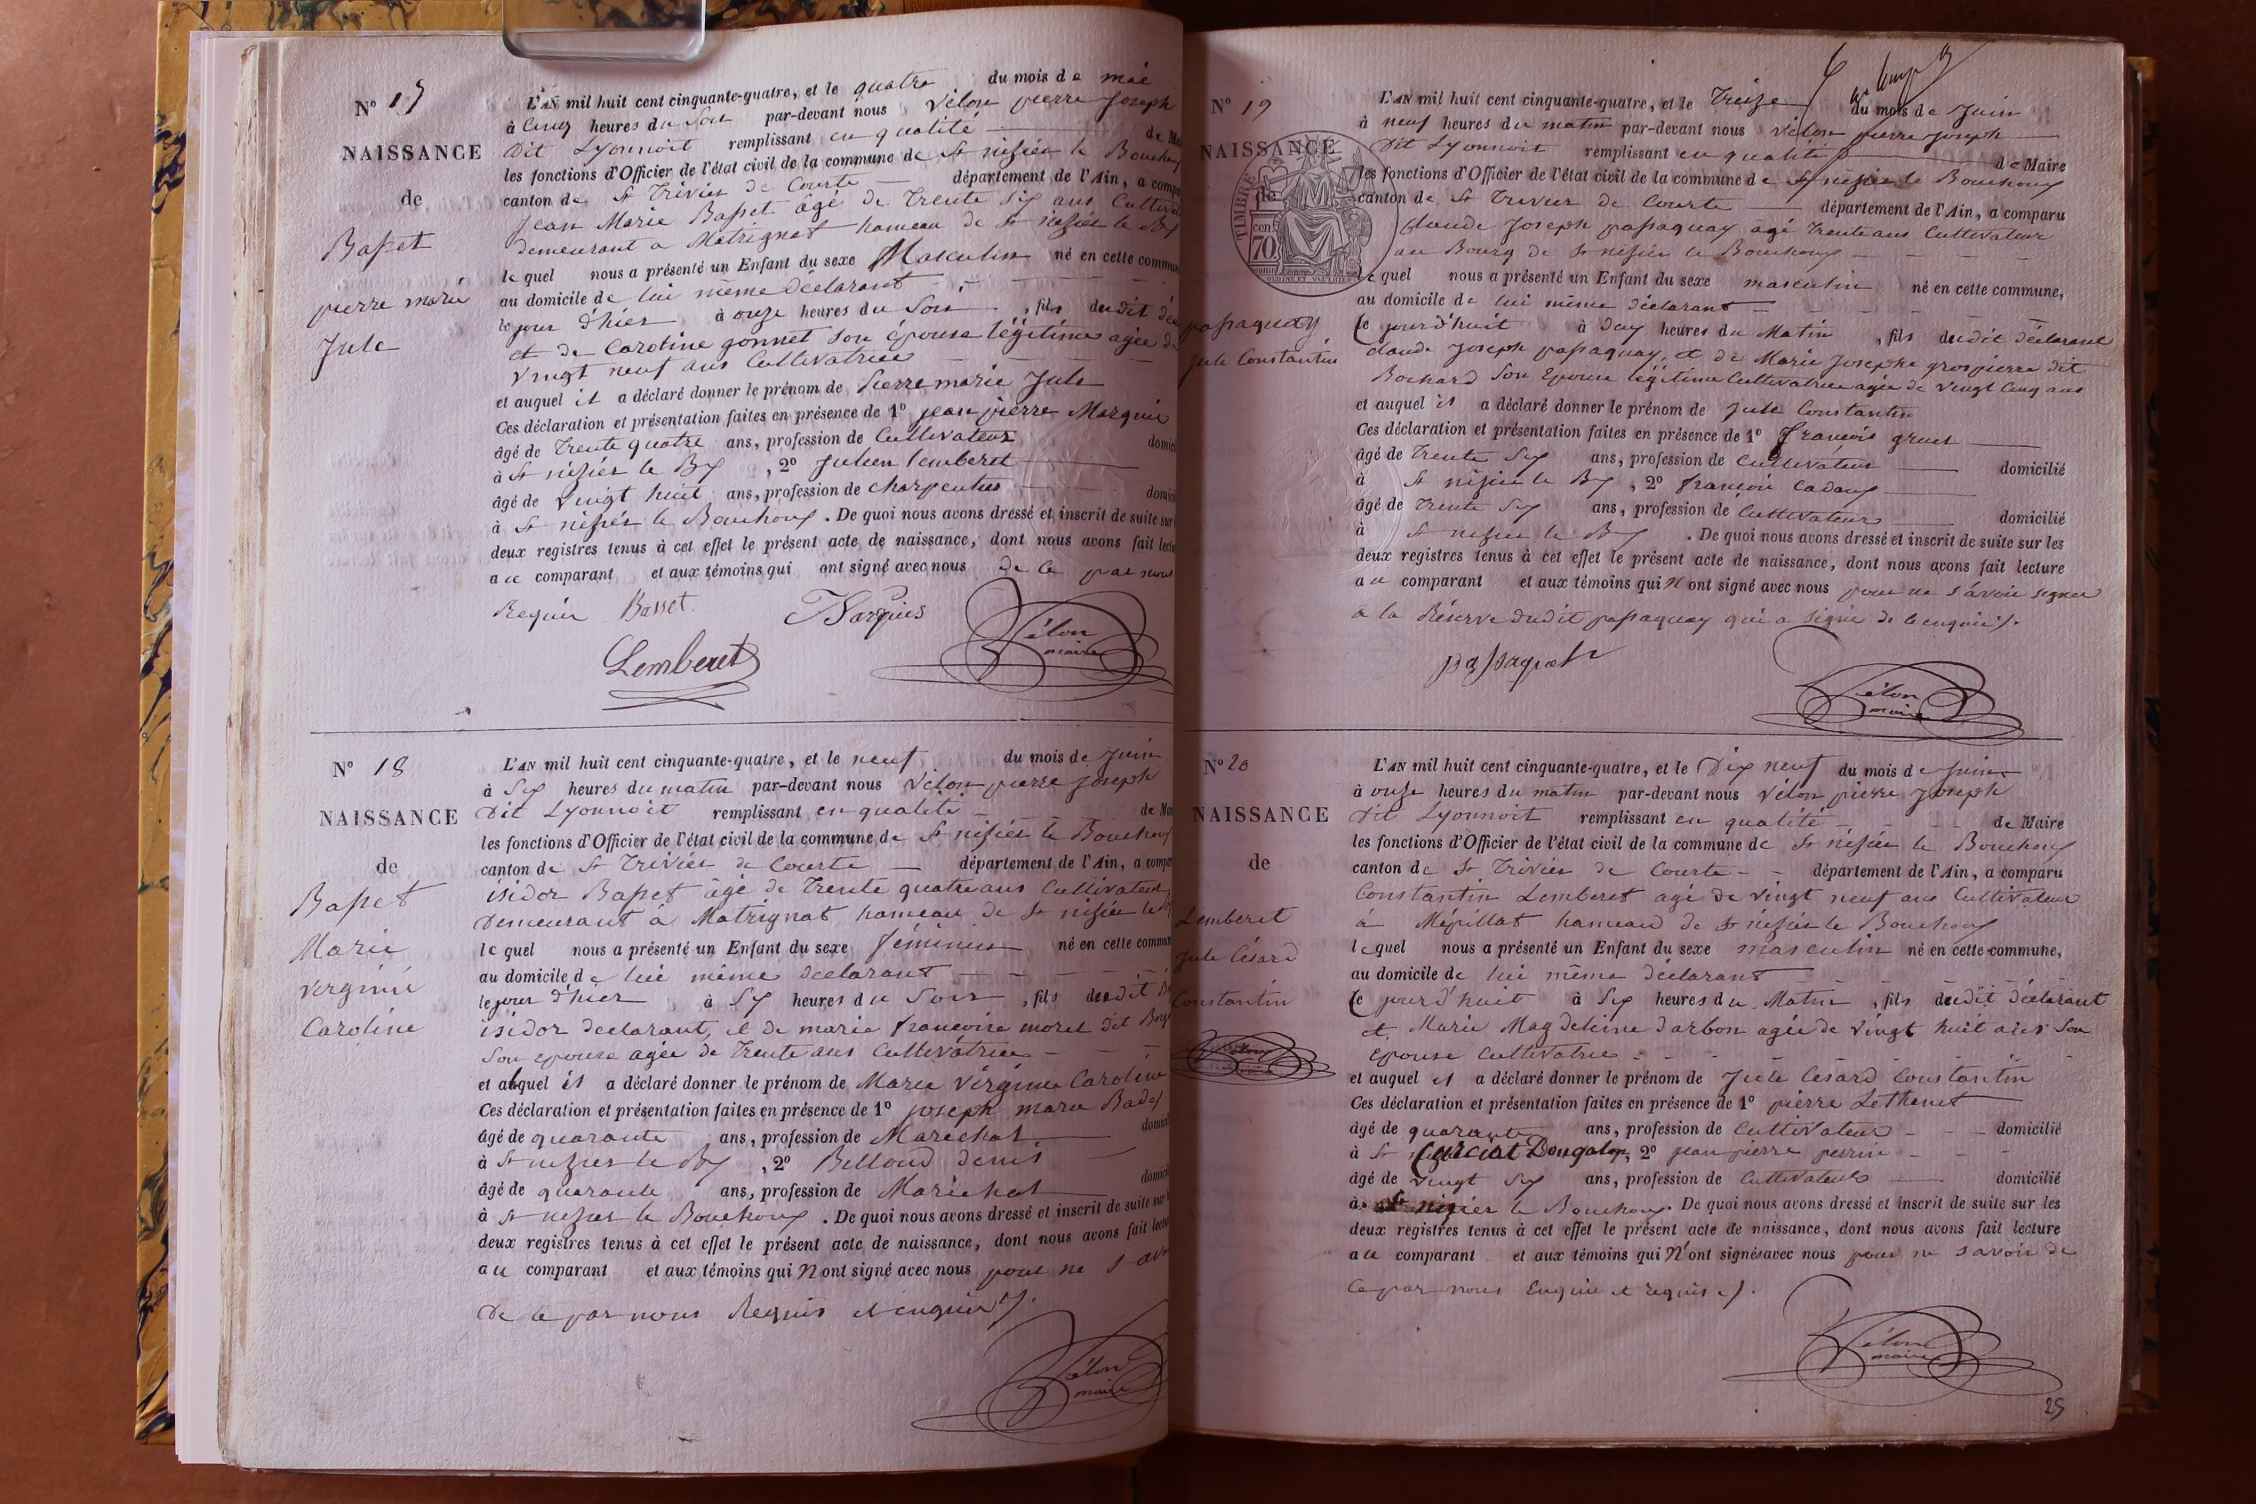 N° 17
NAISSANCE
de
Basset
pierre marie
Jule
L'AN mil huit cent cinquante-quatre, et le quatre du mois de mai
à Cinq heures du Soir par-devant nous Vélon pierre Joseph
Dit Lyonnoit remplissant en qualité de
les fonctions d'Officier de l'état civil de la commune de St nisier le Bouchoux
canton de St Trivier de Courte département de l'Ain, a
Jean Marie Basset âgé de Trente Six ans
demeurant a Matrignat hameau de St nisier le
le quel nous a présenté un Enfant du sexe Masculin né en cette
au domicile de lui même Déclarant
le jour d'hier à onze heures du Soir, fils dudit
et de Caroline gonnet son épouse légitime agée de
vingt neuf ans Cultivatrice
et auquel il a déclaré donner le prénom de Pierre marie Jule
Ces déclaration et présentation faites en présence de 1° jean pierre Marquis
âgé de Trente quatre ans, profession de Cultivateur
à St nisier le Bx, 2° Julien Lemberet
âgé de vingt huit ans, profession de charpentier
à St nisier le Bouchoux. De quoi nous avons dressé et inscrit de suite sur
deux registres tenus à cet effet le présent acte de naissance, dont nous avons fait
au comparant et aux témoins qui ont signé avec nous de ce par nous
Requis Basset Marquis
Lemberet Vélon
maire
N° 18
NAISSANCE
de
Basset
Marie
Virginie
Caroline
L'AN mil huit cent cinquante-quatre, et le neuf du mois de Juin
à Six heures du matin par-devant nous Vélon pierre Joseph
Dit Lyonnoit remplissant en qualité de
les fonctions d'Officier de l'état civil de la commune de St nisier le Bouchoux
canton de St Trivier de Courte département de l'Ain, a
isidor Basset âgé de Trente quatre ans Cultivateur
Demeurant a Matrignat hameau de St nisier le
le quel nous a présenté un Enfant du sexe féminin né en cette
au domicile de lui même déclarant
le jour d'hier à Six heures du Soir, fils dudit
isidor declarant, et de marie francoise morel dit
Son epouse agée de Trente ans Cultivatrice
et auquel il a déclaré donner le prénom de Marie Virginie Caroline
Ces déclaration et présentation faites en présence de 1° joseph marie
âgé de quarante ans, profession de Maréchal
à St nizier le Bx, 2° Belloud denis
âgé de quarante ans, profession de Maréchal
à St nizier le Bouchoux. De quoi nous avons dressé et inscrit de suite sur
deux registres tenus à cet effet le présent acte de naissance, dont nous avons fait
au comparant et aux témoins qui n'ont signé avec nous pour ne
de ce par nous Requis et enquis
Vélon
maire
N° 19
NAISSANCE
de
TIMBRE
70
passaquay
Jule Constantin
L'AN mil huit cent cinquante-quatre, et le Treize du mois de Juin
à neuf heures du matin par-devant nous Vélon pierre joseph
Dit Lyonnoit remplissant en qualité de Maire
les fonctions d'Officier de l'état civil de la commune de St nisier le Bouchoux
canton de St Trivier de Courte département de l'Ain, a comparu
Claude Joseph passaquay agé Trente ans Cultivateur
au Bourg de St nisier le Bouchoux
le quel nous a présenté un Enfant du sexe masculin né en cette commune,
au domicile de lui même déclarant
le jourd'huit à Deux heures du Matin, fils dudit déclarant
claude Joseph passaquay, et de Marie Josephe grospierre dit
Bochard Son Epouse légitime Cultivatrice agée de vingt Cinq ans
et auquel il a déclaré donner le prénom de Jule Constantin
Ces déclaration et présentation faites en présence de 1° françois
âgé de Trente Six ans, profession de Cultivateur domicilié
à St nisier le Bx, 2° françois Cadoux
âgé de Trente Six ans, profession de Cultivateur domicilié
à St nisier le Bx. De quoi nous avons dressé et inscrit de suite sur les
deux registres tenus à cet effet le présent acte de naissance, dont nous avons fait lecture
au comparant et aux témoins qui n'ont signé avec nous pour ne s'avoir signer
à la Réserve dudit passaquay qui a signé de ce enquis
passaquay
Vélon
maire
N° 20
NAISSANCE
de
Lemberet
Jule Césard
Constantin
L'AN mil huit cent cinquante-quatre, et le Dix neuf du mois de Juin
à onze heures du matin par-devant nous Vélon pierre Joseph
Dit Lyonnoit remplissant en qualité de Maire
les fonctions d'Officier de l'état civil de la commune de St nisier le Bouchoux
canton de St Trivier de Courte département de l'Ain, a comparu
Constantin Lemberet agé de vingt neuf ans Cultivateur
à Mépillat hameau de St nizier le Bouchoux
lequel nous a présenté un Enfant du sexe masculin né en cette commune,
au domicile de lui même déclarant
le jourd'huit à Six heures du Matin, fils dudit déclarant
et Marie Magdeleine darbon agée de vingt huit ans Son
epouse Cultivatrice
et auquel il a déclaré donner le prénom de Jule Césard Constantin
Ces déclaration et présentation faites en présence de 1° pierre Lethenet
âgé de quarante ans, profession de Cultivateur domicilié
à Curciat Dongalon, 2° jean pierre perrin
âgé de vingt Six ans, profession de Cultivateur domicilié
à St nizier le Bouchoux. De quoi nous avons dressé et inscrit de suite sur les
deux registres tenus à cet effet le présent acte de naissance, dont nous avons fait lecture
au comparant et aux témoins qui n'ont signés avec nous pour ne savoir de
ce par nous Enquis et requis
Vélon
maire
25